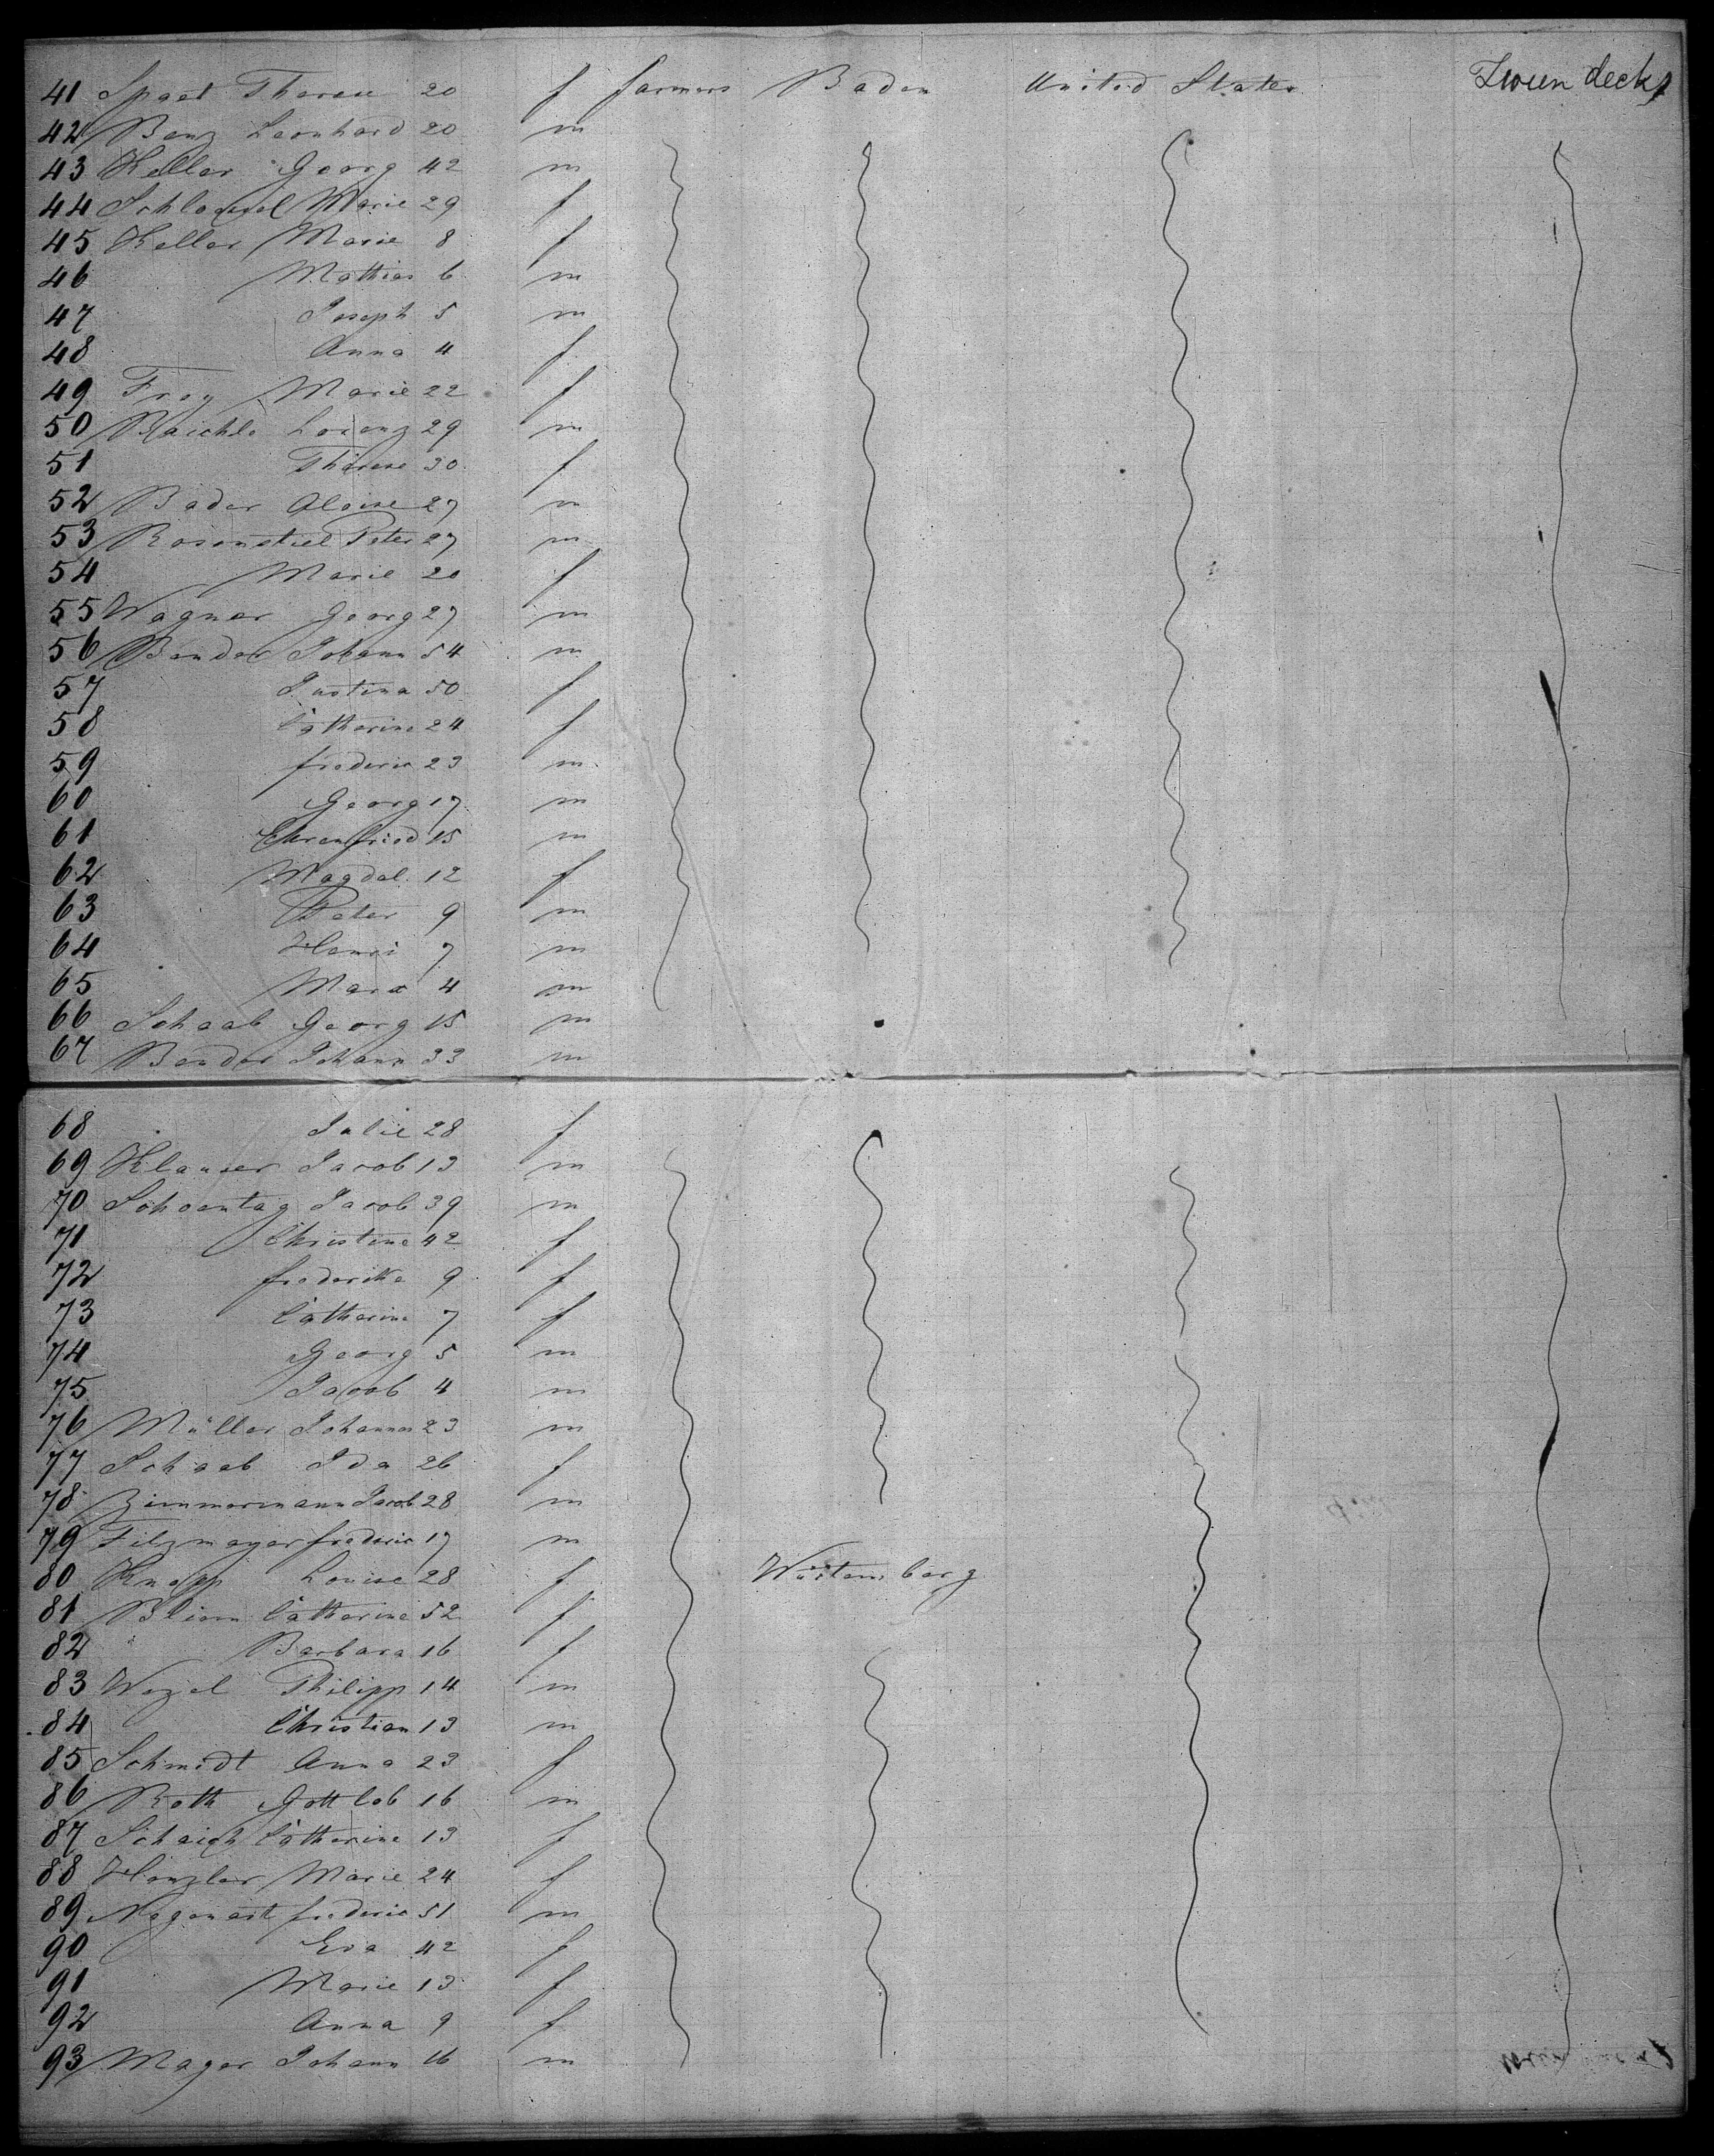 41 Spaet Therese 20 f farmers Baden United States Zwien decks
42 Benz Leonhard 20 m
43 Keller Georg 42 m
44 Marie 29 f
45 Keller Marie 8 f
46 Mathias 6 m
47 Joseph 5 m
48 Anna 4 f
49 Frey Marie 22 f
50 Raichle Lorenz 29 m
51 Therese 30 f
52 Bader Aloise 27 m
53 Rosenstiel Peter 27 m
54 Marie 20 f
55 Wagner Georg 27 m
56 Bender Johann 54 m
57 Justina 50 f
58 Catherine 24 f
59 frederic 23 m
60 Georg 17 m
61 Ehrenfried 15 m
62 Magdal. 12 f
63 Peter 9 m
64 Henri 7 m
65 Marx 4 m
66 Schaab Georg 15 m
67 Bender Johann 33 m
68 Julie 28 f
69 Klauser Jacob 13 m
70 Schoentag Jacob 39 m
71 Christine 42 f
72 frederike 9 f
73 Catherine 7 f
74 Georg 5 m
75 Jacob 4 m
76 Müller Johannes 23 m
77 Schaab Ida 26 f
78 Zimmermann Jacob 28 m
79 Filzmayer frederic 17 m
80 Knapp Louise 28 f Würtemberg
81 Catherine 52 f
82 " Barbara 16 f
83 Wezel Philipp 14 m
84 Christian 13 m
85 Schmidt Anna 23 f
86 Roth Gottlob 16 m
87 Schaich Catherine 13 f
88 Henzler Marie 24 f
89 frederic 51 m
90 Eva 42 f
91 Marie 13 f
92 Anna 9 f
93 Mayer Johann 16 m